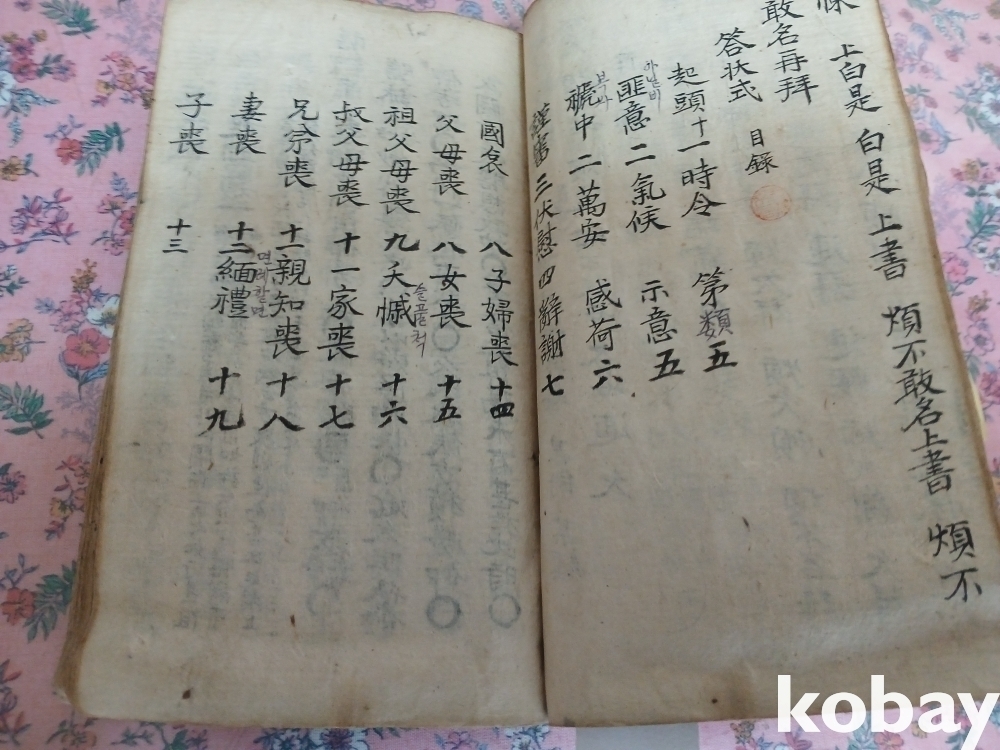 上白是 白是 上書 煩不敢名上書 煩不
敢名再拜
答状式 目錄
起頭 十一時令 第類五
匪意 二氣候 示意 五
아닐비
褫中 二萬安 感荷 六
三伏慰 四辭謝 七
國哀 八 子婦喪 十四
父母喪 八 女喪 十五
祖父母喪 九 夭慽 十六
슬플척
叔父母喪 十 一家喪 十七
兄弟喪 十一 親知喪 十八
妻喪 十二 緬禮 十九
면례할면
子喪 十三
kobay